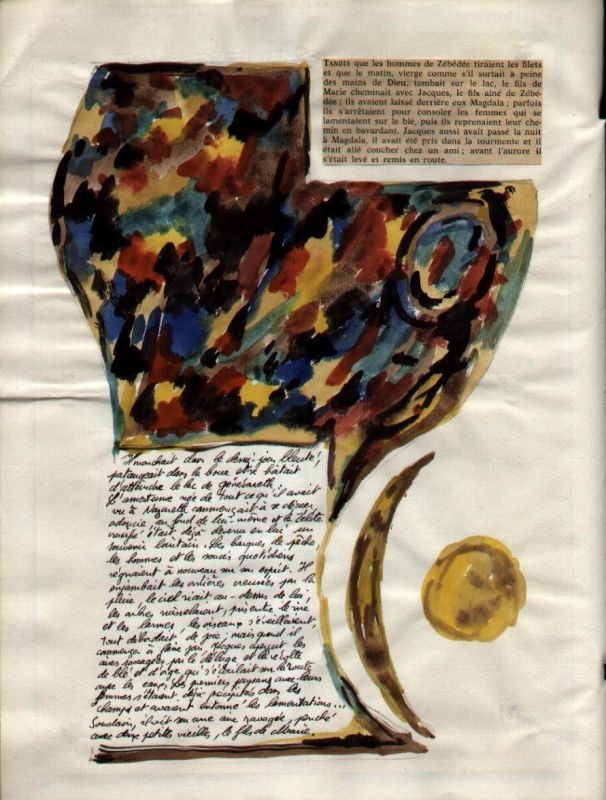 TANDIS que les hommes de Zébédée tiraient les filets
et que le matin, vierge comme s'il sortait à peine
des mains de Dieu, tombait sur le lac, le fils de
Marie cheminait avec Jacques, le fils aîné de Zébé-
dée ; ils avaient laissé derrière eux Magdala ; parfois
ils s'arrêtaient pour consoler les femmes qui se
lamentaient sur le blé, puis ils reprenaient leur che-
min en bavardant. Jacques aussi avait passé la nuit
à Magdala, il avait été pris dans la tourmente et il
était allé coucher chez un ami ; avant l'aurore il
s'était levé et remis en route.
Il marchait dans le demi-jour bleuté,
pataugeait dans la boue et se hâtait
d'atteindre le lac de Génésareth.
L'amertume née de tout ce qu'il avait
vu à Nazareth commençait à se déposer,
adoucie, au fond de lui-même et le Zélote
crucifié était déjà devenu en lui un
souvenir lointain. Les barques de pêche,
les hommes et les soucis quotidiens
régnaient à nouveau sur son esprit. Il
enjambait les ornières creusées par la
pluie, le ciel riait au-dessus de lui ;
les arbres ruisselaient, pris entre le rire
et les larmes, les oiseaux s'éveillaient,
tout débordait de joie ; mais quand il
commença à faire jour, Jacques aperçut les
aires ravagées par le déluge et la récolte
de blé et d'orge qui s'écoulait sur la route
avec les eaux. Les premiers paysans avec leurs
femmes s'étaient déjà précipités dans les
champs et avaient entonné les lamentations...
Soudain, il voit sur une aire ravagée, penché
avec deux petites vieilles, le fils de Marie.